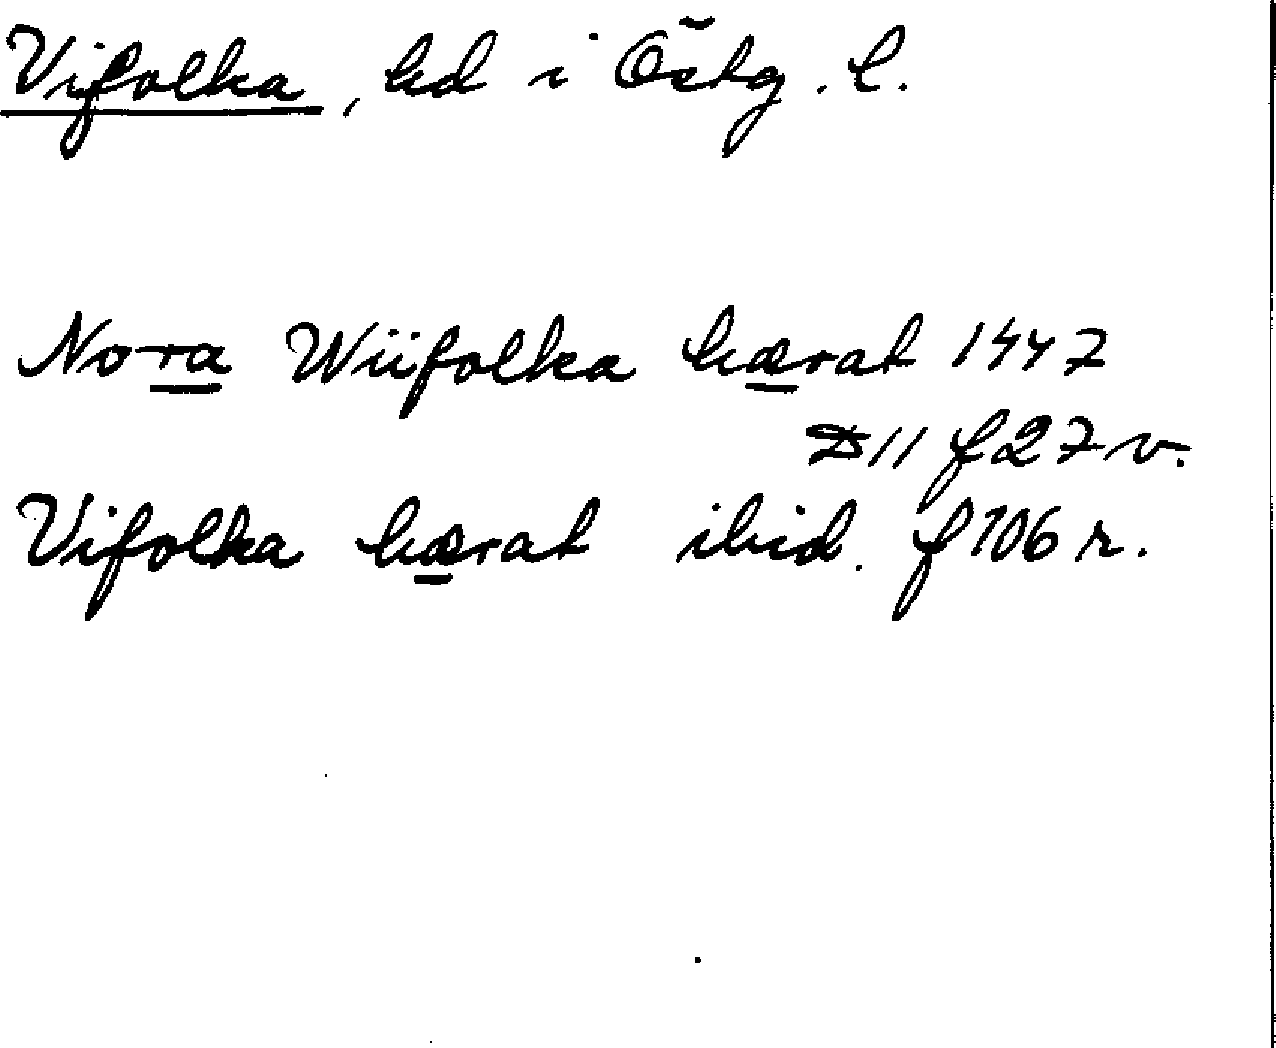 Vifolka, hd i Östg. l.
Nora Wiifolka hærat 1447
D11 f27v.
Vifolka hærat ibid. f106r.